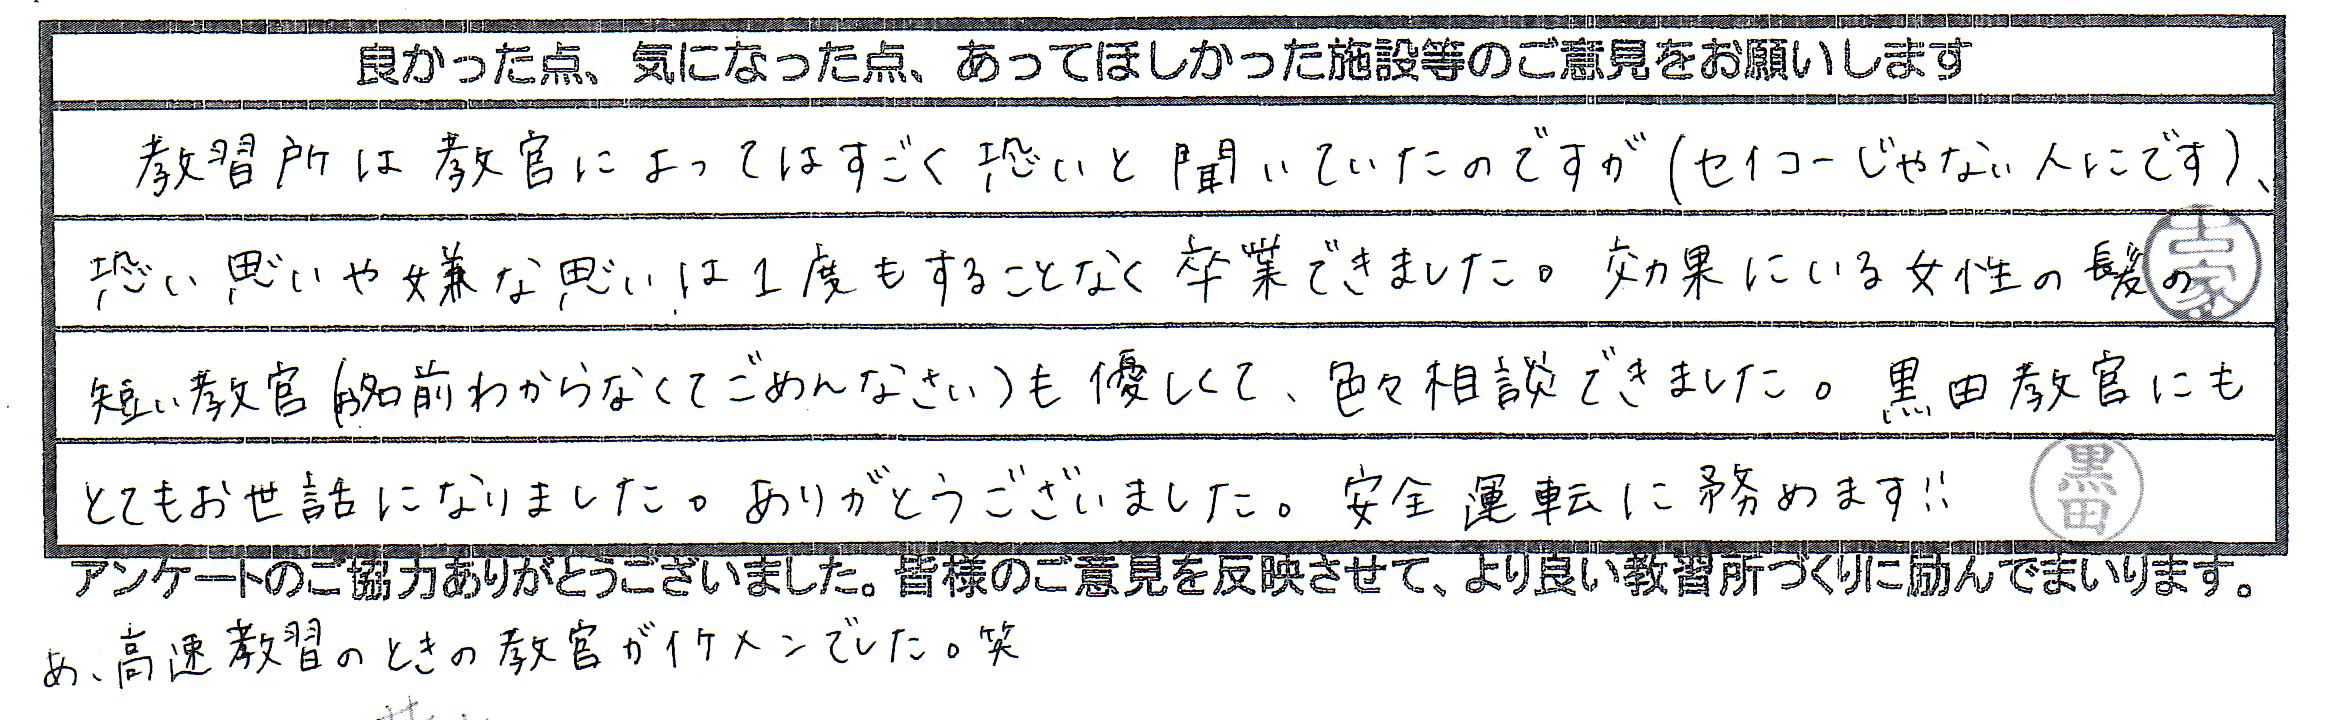 良かった点、気になった点、あってほしかった施設等のご意見をお願いします
教習所は教官によってはすごく恐いと聞いていたのですが(セイコーじゃない人にです)、
恐い思いや嫌な思いは1度もすることなく卒業できました。効果にいる女性の髪の
古家
短い教官(お名前わからなくてごめんなさい)も優しくて、色々相談できました。黒田教官にも
とてもお世話になりました。ありがとうございました。安全運転に務めます!!
黒田
アンケートのご協力ありがとうございました。皆様のご意見を反映させて、より良い教習所づくりに励んでまいります。
あ、高速教習のときの教官がイケメンでした。笑